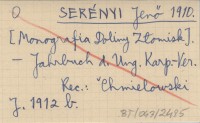 O SERÉNYI Jenő 1910.
[Monografia Doliny Złomisk].
– Jahrbuch d. Ung. Karp.-Ver.
Rec.: Chmielowski
J. 1912 b.
BT/049/2485